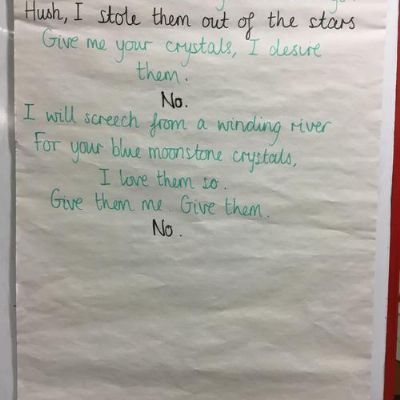 Hush, I stole them out of the stars
Give me your crystals, I desire
them.
No.
I will screech from a winding river
For your blue moonstone crystals,
I love them so.
Give them me. Give them.
No.